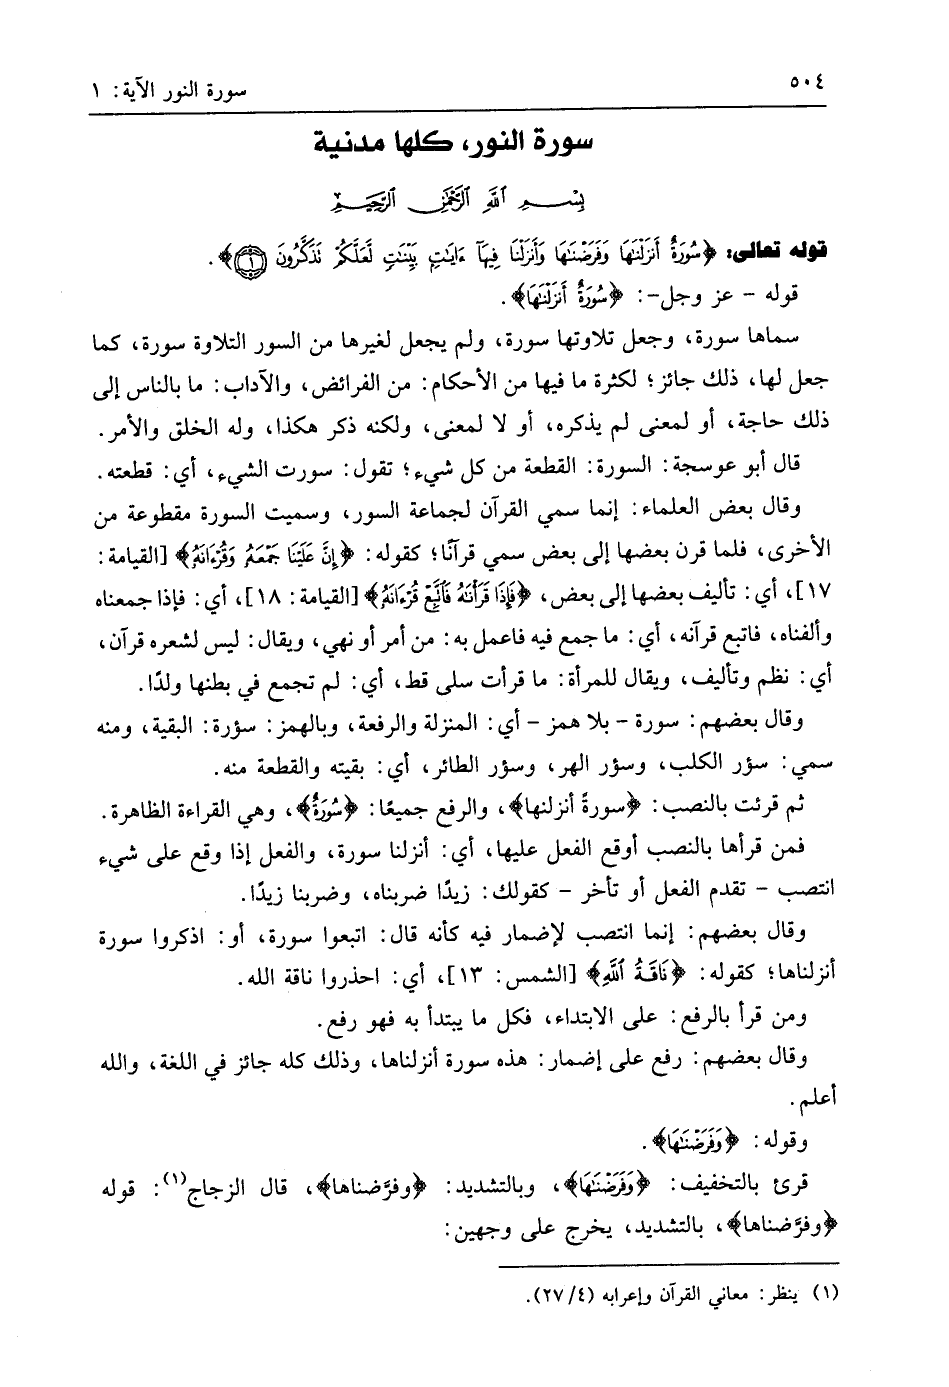 ٥٠٤
سورة النور الآية: ١
سورة النور، كلها مدنية
بِسْمِ اللَّهِ الرَّحْمَٰنِ الرَّحِيمِ
قوله تعالى: ﴿سُورَةٌ أَنزَلْنَٰهَا وَفَرَضْنَٰهَا وَأَنزَلْنَا فِيهَآ ءَايَٰتٍۭ بَيِّنَٰتٍ لَّعَلَّكُمْ تَذَكَّرُونَ ١﴾.
قوله - عز وجل-: ﴿سُورَةٌ أَنزَلْنَٰهَا﴾.
سماها سورة، وجعل تلاوتها سورة، ولم يجعل لغيرها من السور التلاوة سورة، كما
جعل لها، ذلك جائز؛ لكثرة ما فيها من الأحكام: من الفرائض، والآداب: ما بالناس إلى
ذلك حاجة، أو لمعنى لم يذكره، أو لا لمعنى، ولكنه ذكر هكذا، وله الخلق والأمر.
قال أبو عوسجة: السورة: القطعة من كل شيء؛ تقول: سورت الشيء، أي: قطعته.
وقال بعض العلماء: إنما سمي القرآن لجماعة السور، وسميت السورة مقطوعة من
الأخرى، فلما قرن بعضها إلى بعض سمي قرآنًا؛ كقوله: ﴿إِنَّ عَلَيْنَا جَمْعَهُۥ وَقُرْءَانَهُۥ﴾ [القيامة:
١٧]، أي: تأليف بعضها إلى بعض، ﴿فَإِذَا قَرَأْنَٰهُ فَٱتَّبِعْ قُرْءَانَهُۥ﴾ [القيامة: ١٨]، أي: فإذا جمعناه
وألفناه، فاتبع قرآنه، أي: ما جمع فيه فاعمل به: من أمر أو نهي، ويقال: ليس لشعره قرآن،
أي: نظم وتأليف، ويقال للمرأة: ما قرأت سلى قط، أي: لم تجمع في بطنها ولدًا.
وقال بعضهم: سورة - بلا همز - أي: المنزلة والرفعة، وبالهمز: سؤرة: البقية، ومنه
سمي: سؤر الكلب، وسؤر الهر، وسؤر الطائر، أي: بقيته والقطعة منه.
ثم قرئت بالنصب: ﴿سورةً أنزلنها﴾، والرفع جميعًا: ﴿سُورَةٌ﴾، وهي القراءة الظاهرة.
فمن قرأها بالنصب أوقع الفعل عليها، أي: أنزلنا سورة، والفعل إذا وقع على شيء
انتصب - تقدم الفعل أو تأخر - كقولك: زيدًا ضربناه، وضربنا زيدًا.
وقال بعضهم: إنما انتصب لإضمار فيه كأنه قال: اتبعوا سورة، أو: اذكروا سورة
أنزلناها؛ كقوله: ﴿نَاقَةُ ٱللَّهِ﴾ [الشمس: ١٣]، أي: احذروا ناقة الله.
ومن قرأ بالرفع: على الابتداء، فكل ما يبتدأ به فهو رفع.
وقال بعضهم: رفع على إضمار: هذه سورة أنزلناها، وذلك كله جائز في اللغة، والله
أعلم.
وقوله: ﴿وَفَرَضْنَٰهَا﴾.
قرئ بالتخفيف: ﴿وَفَرَضْنَٰهَا﴾، وبالتشديد: ﴿وفرَّضناها﴾، قال الزجاج(١): قوله
﴿وفرَّضناها﴾، بالتشديد، يخرج على وجهين:
(١) ينظر: معاني القرآن وإعرابه (٢٧/٤).